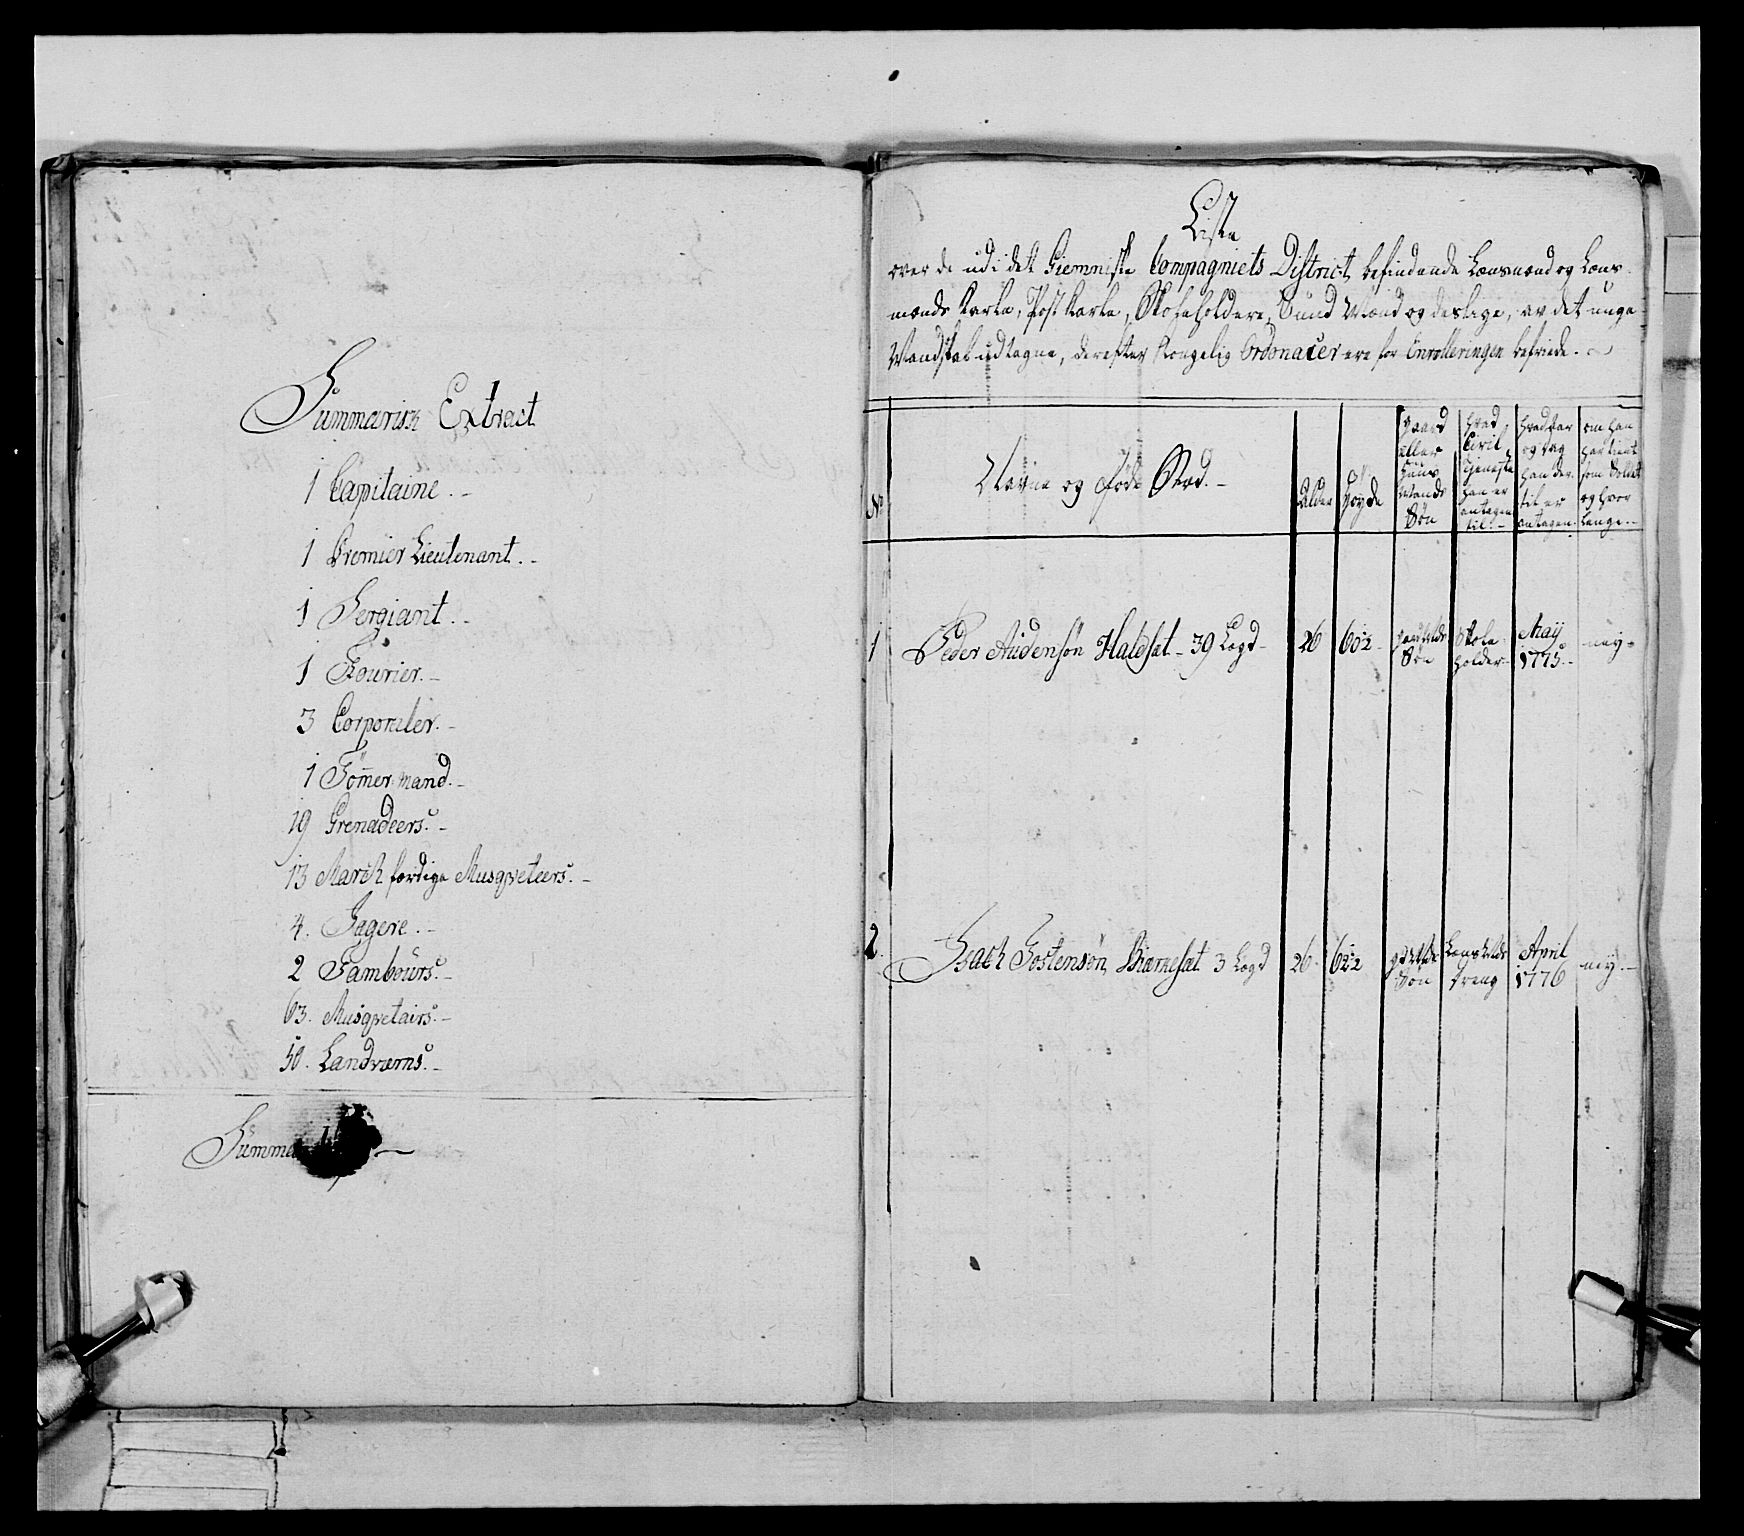 Summarisk Extract
1 Capitaine.-
1 Premier Lieutenant.-
1 Sergiant.-
1 Fourier.-
3 Corporaler.-
1 Tömer mand.-
19 Grenadeers.-
13 March færdige Musqveteers.-
4. Jagere.-
2 Tambours.-
63. Musqvetairs.-
50. Landværns.-
Summa
Liste
over de udi det Giemniske Compagniets District befindende Lænsmænd og Læns-
mænds Karle, Post Karle, Skoleholdere, Sund Mænd og deslige, av det unge
Mandskab udtagne, der efter Kongelig Ordonacer ere for Enrolleringen befriede.
No
Navne og føde Stæd.-
Alder
Høyde
Gaard
eller
Huus
Mands
Søn
hvad
Civil
Tjeneste
han er
antagen
til.-
hvad aar
og dag
han der
til er
antagen.
om han
har tient
som Soldat
og hvor
længe.-
1 Peder Audensøn Haldsæt - 39 Lægd - 26 60½ Gaard Mds Søn Skole holder May 1775.- ney-
2. Isach Tostensøn Biærkesæt 3 Lægd 26 62½ Søn Lens Mds dreng April 1776 ney.-